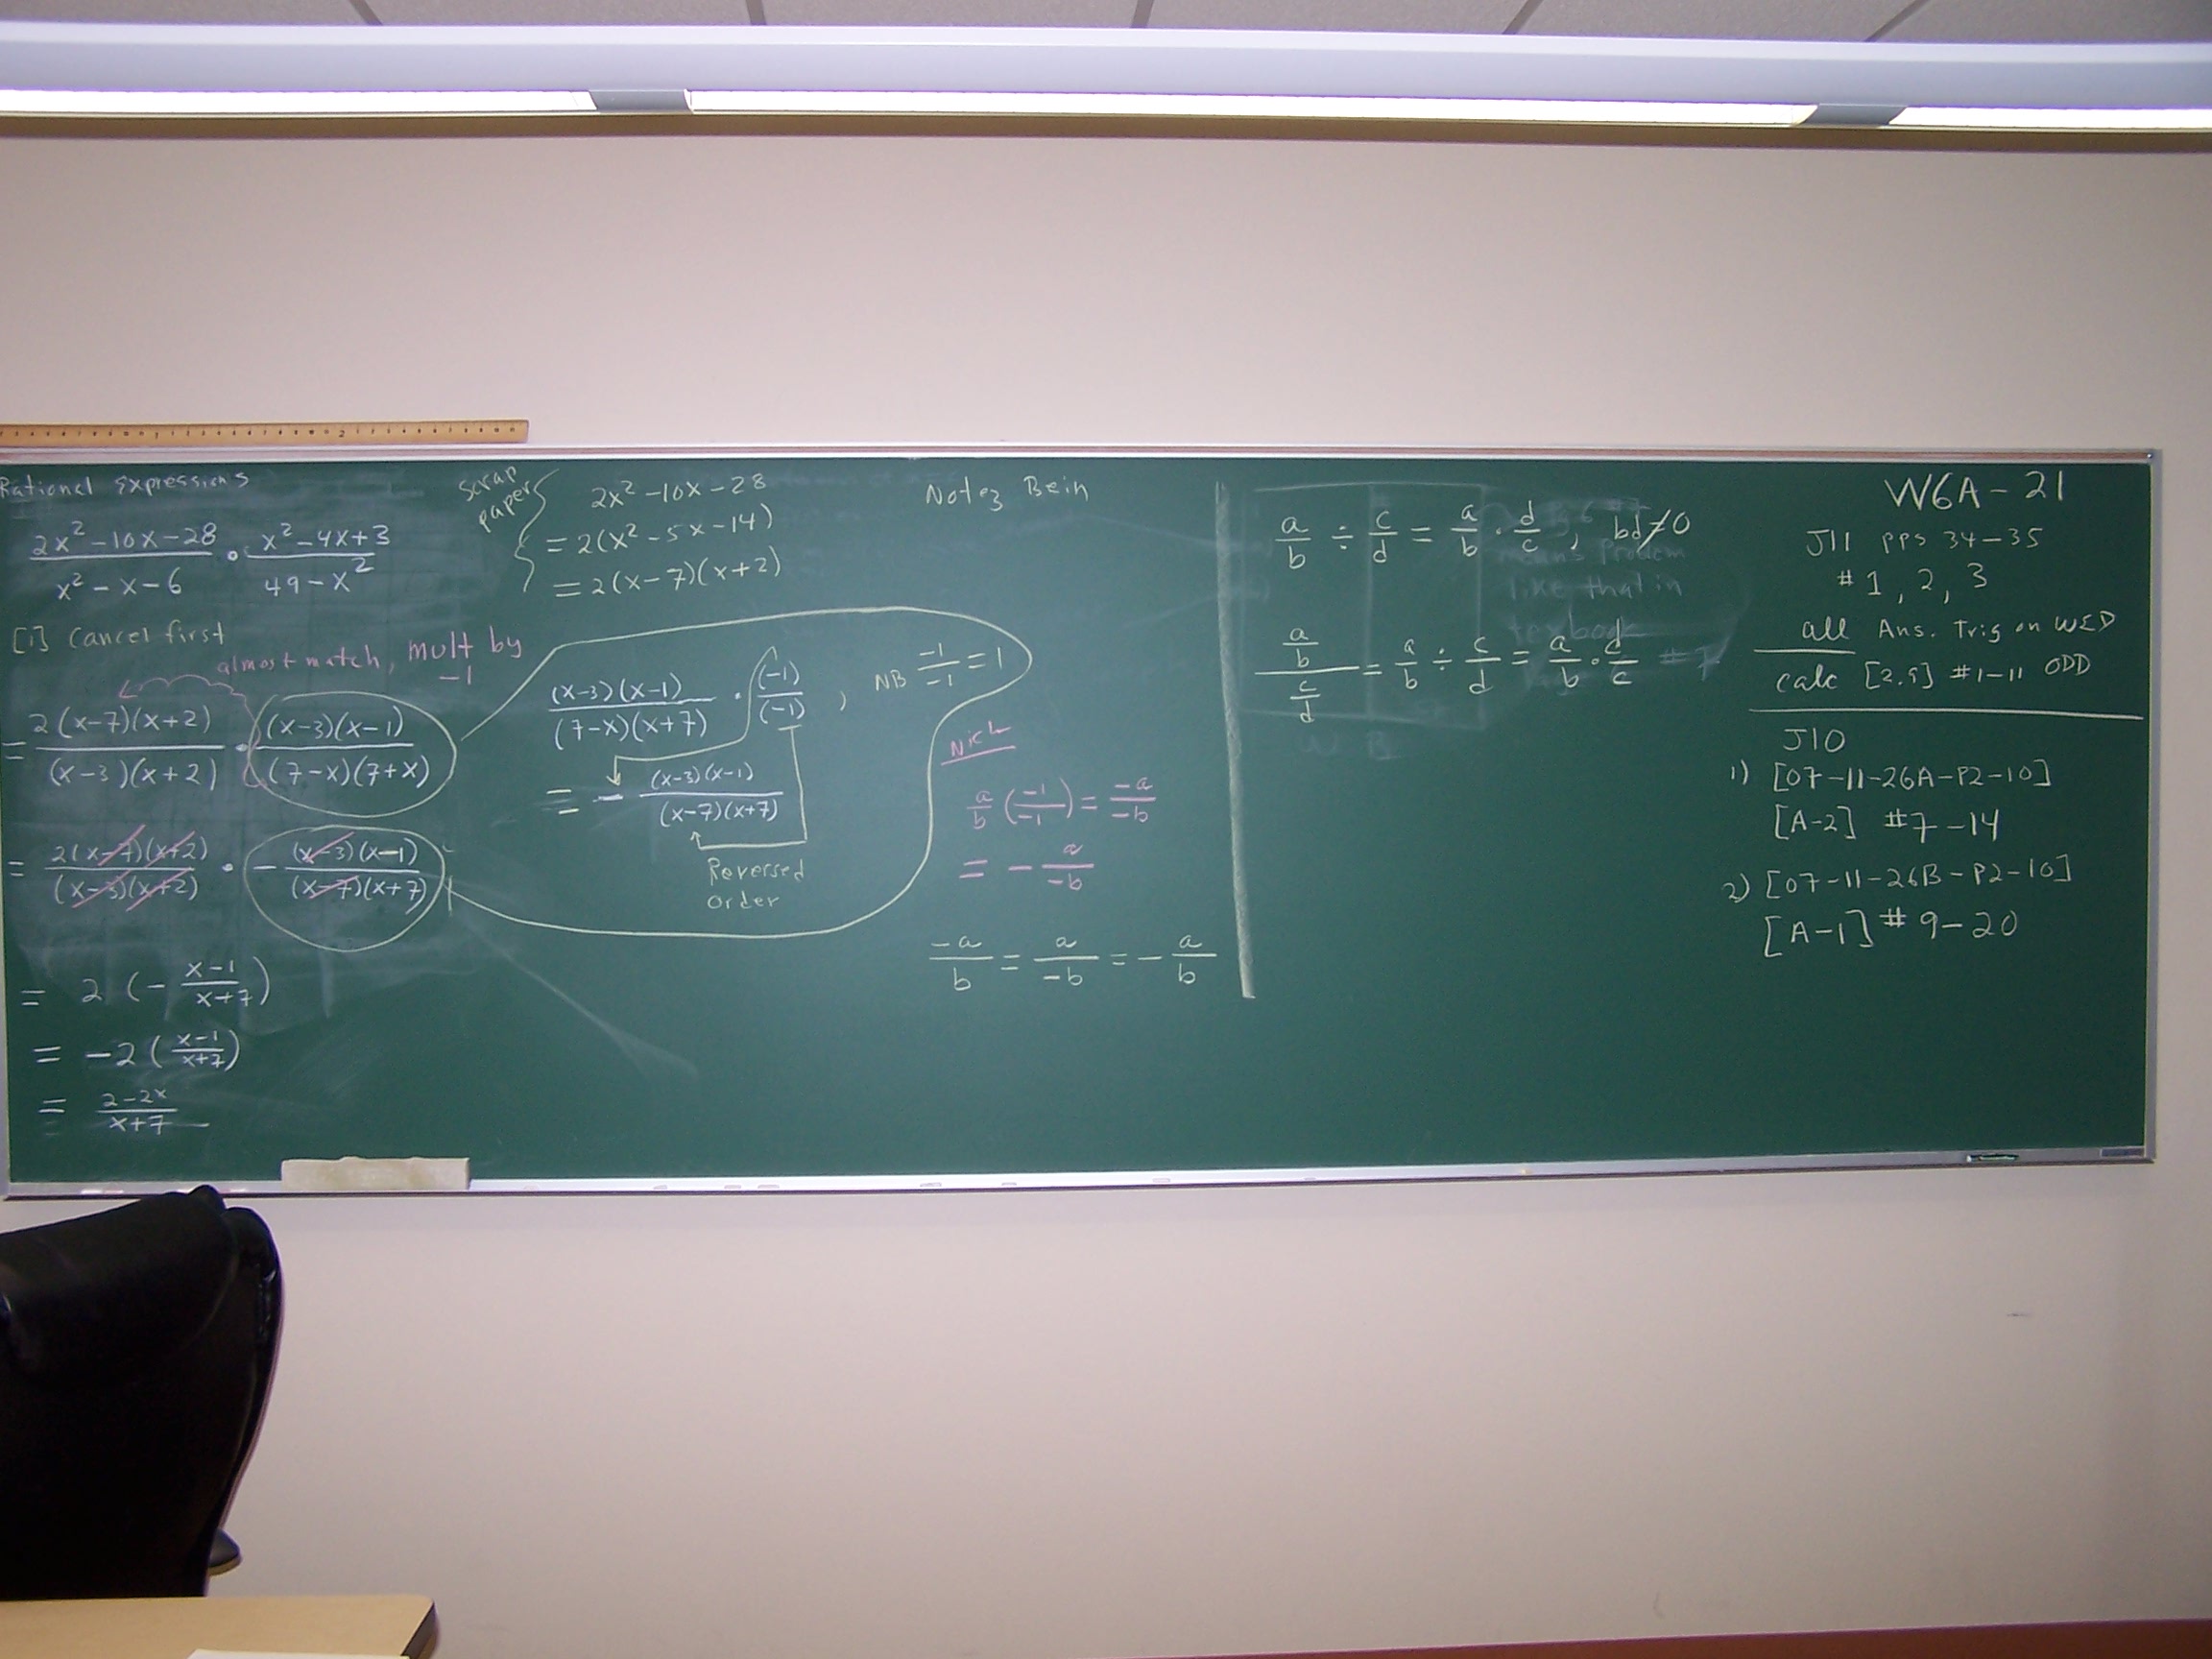 Rational Expressions
2x² - 10x - 28 / x² - x - 6 · x² - 4x + 3 / 49 - x²
[1] Cancel first
almost match, mult by -1
= 2(x-7)(x+2) / (x-3)(x+2) · (x-3)(x-1) / (7-x)(7+x)
= 2(x-7)(x+2) / (x-3)(x+2) · - (x-3)(x-1) / (x-7)(x+7)
= 2 (- x-1 / x+7)
= -2 (x-1 / x+7)
= 2-2x / x+7
scrap paper
2x² - 10x - 28
= 2(x² - 5x - 14)
= 2(x-7)(x+2)
(x-3)(x-1) / (7-x)(x+7) · (-1) / (-1) , NB -1 / -1 = 1
= - (x-3)(x-1) / (x-7)(x+7)
Reversed
order
Notez Bein
Nick
a/b (-1/-1) = -a/-b
= - a/-b
-a/b = a/-b = - a/b
a/b ÷ c/d = a/b · d/c , bd≠0
a/b / c/d = a/b ÷ c/d = a/b · d/c #7
means problem
like that in
textbook
W6A-21
J11 pps 34-35
# 1, 2, 3
all Ans. Trig on WED
calc [2.9] #1-11 ODD
J10
1) [07-11-26A-P2-10]
[A-2] #7-14
2) [07-11-26B-P2-10]
[A-1] # 9-20